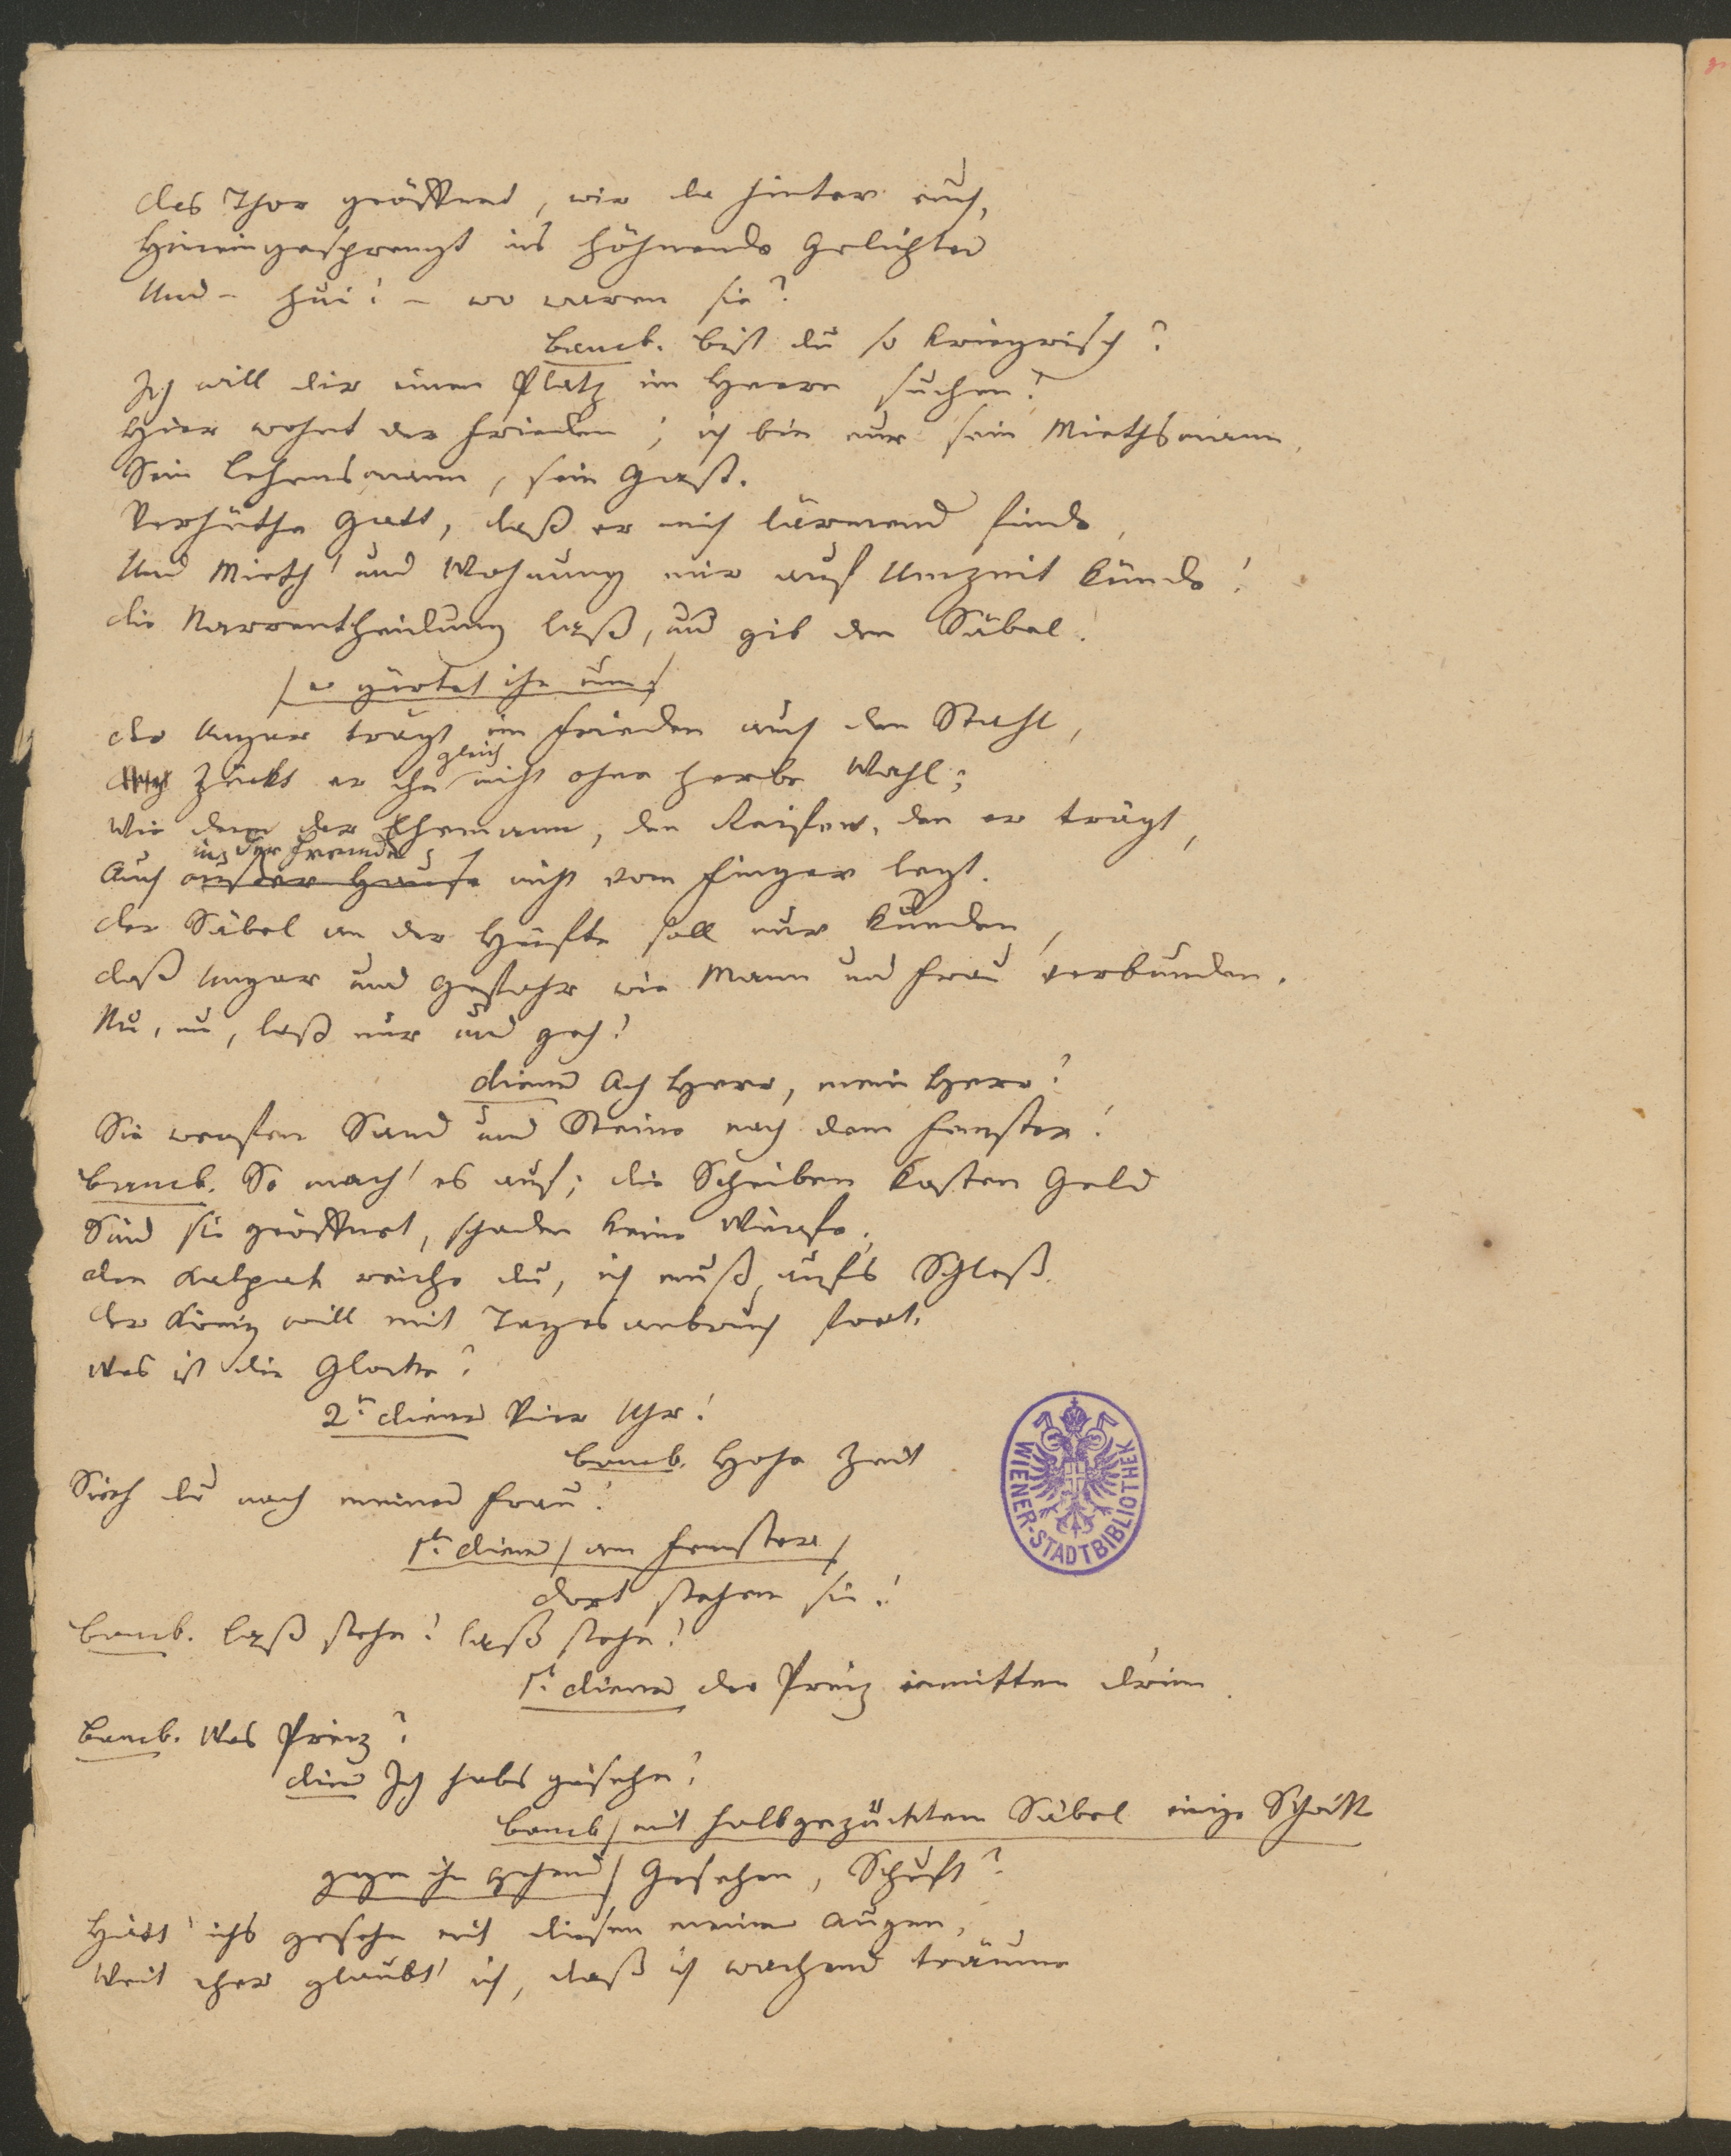 das Thor geöffnet, wir da hinter euch,
Hineingesprengt ins höhnende Gelichter
Und – hui! – wo waren sie?
Bancb. Bist du so kriegrisch?
Ich will dir einen Platz im Heere suchen!
Hier wohnt der Frieden; ich bin nur sein Miethsmann,
Sein Lehensmann, sein Gast.
Verhüthe Gott, daß er mich lärmend finde,
Und Mieth' und Wohnung mir auf Umzeit künde!
die Narrentheidung laß, und gib den Säbel!
/er gürtet ihn um/
der Ungar trägt im Frieden auch den Stahl,
Zückt er ihn gleich nicht ohne herbe Wahl;
Wie denn der Ehemann, den Reifen, den er trägt,
in der Fremde
Auch außer Hause nicht vom Finger legt.
der Säbel an der Hüfte soll nur künden,
daß Ungar und Gefahr wie Mann und Frau verbunden.
Nu, nu, laß nur und geh!
diener Ach Herr, mein Herr!
Sie werfen Sand und Steine nach dem Fenster!
Bancb. So mach' es auf; die Scheiben kosten Geld
Sind sie geöffnet, schaden keine Würfe.
den Kalpak reiche du, ich muß aufs Schloß.
der König will mit Tagesanbruch fort.
Was ist die Glocke?
2r. diener Vier Uhr!
Bancb. Hohe Zeit
Sieh du nach meiner Frau!
1r. diener / am Fenster /
dort stehen sie!
Bancb. laß stehn! laß stehn!
1r. diener der Prinz inmitten drin.
Bancb. Was Prinz?
dien Ich habs gesehn!
Bancb / mit halbgezücktem Säbel einige Schritte
gegen ihn gehend / Gesehen, Schuft?
Hätt' ichs gesehn mit diesen meinen Augen,
Weit eher glaubt' ich, daß ich wachend träume
WIENER-STADTBIBLIOTHEK